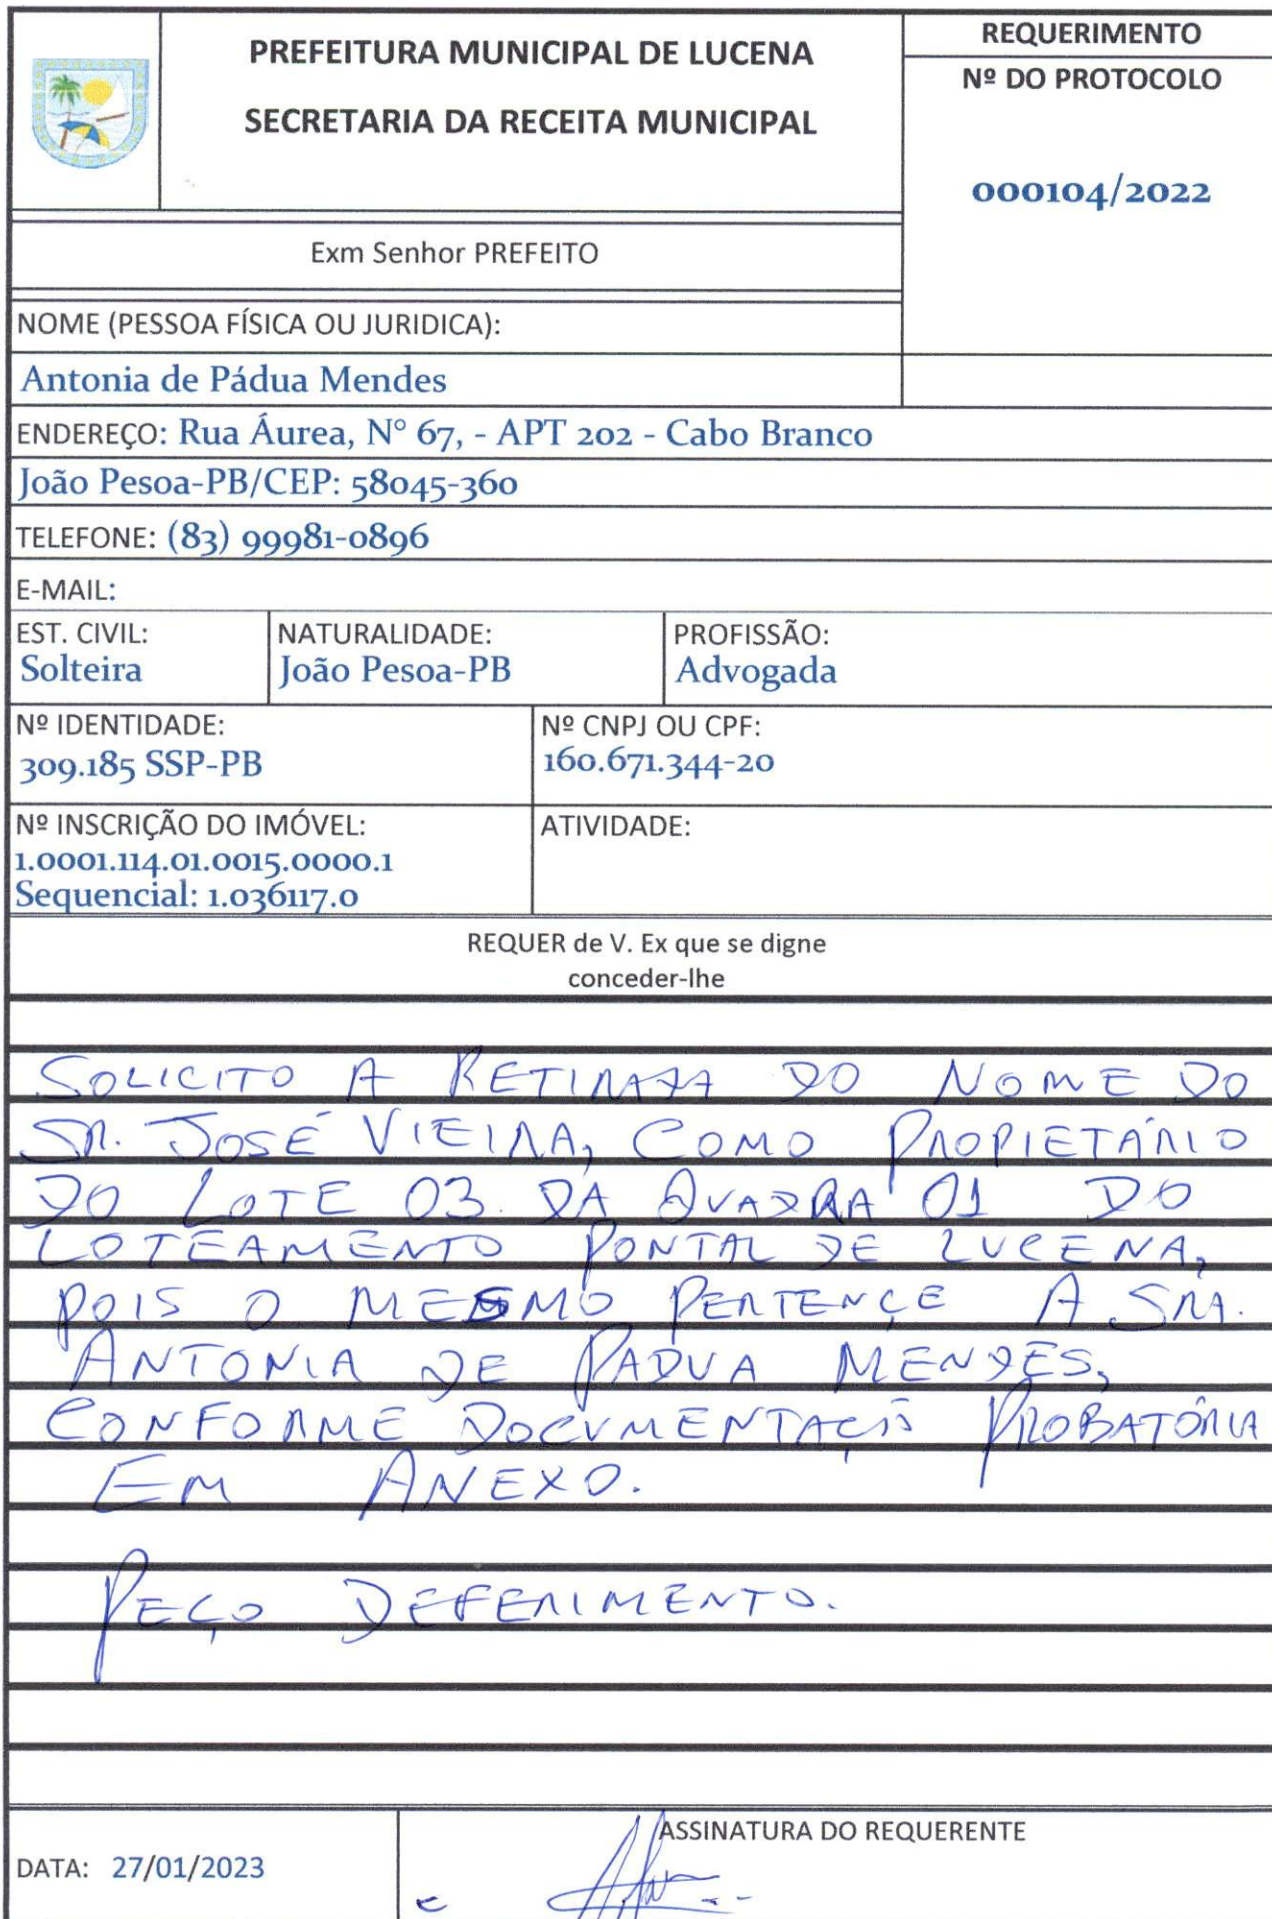 PREFEITURA MUNICIPAL DE LUCENA
SECRETARIA DA RECEITA MUNICIPAL
REQUERIMENTO
Nº DO PROTOCOLO
000104/2022
Exm Senhor PREFEITO
NOME (PESSOA FÍSICA OU JURIDICA):
Antonia de Pádua Mendes
ENDEREÇO: Rua Áurea, N° 67, - APT 202 - Cabo Branco
João Pesoa-PB/CEP: 58045-360
TELEFONE: (83) 99981-0896
E-MAIL:
EST. CIVIL:
Solteira
NATURALIDADE:
João Pesoa-PB
PROFISSÃO:
Advogada
Nº IDENTIDADE:
309.185 SSP-PB
Nº CNPJ OU CPF:
160.671.344-20
Nº INSCRIÇÃO DO IMÓVEL:
1.0001.114.01.0015.0000.1
Sequencial: 1.036117.0
ATIVIDADE:
REQUER de V. Ex que se digne
conceder-lhe
SOLICITO A RETIRADA DO NOME DO
SR. JOSÉ VIEIRA, COMO PROPIETÁRIO
DO LOTE 03. DA QUADRA 01 DO
LOTEAMENTO PONTAL DE LUCENA,
POIS O MESMO PERTENÇE A SRA.
ANTONIA DE PADUA MENDES,
CONFORME DOCUMENTAÇÃO PROBATÓRIA
EM ANEXO.
PEÇO DEFERIMENTO.
DATA: 27/01/2023
ASSINATURA DO REQUERENTE